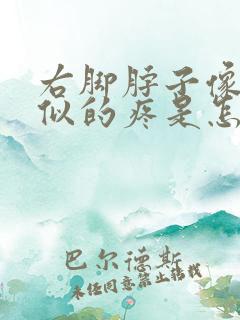 右脚脖子像
似的疼是怎
巴尔德斯
未经同意禁止转载